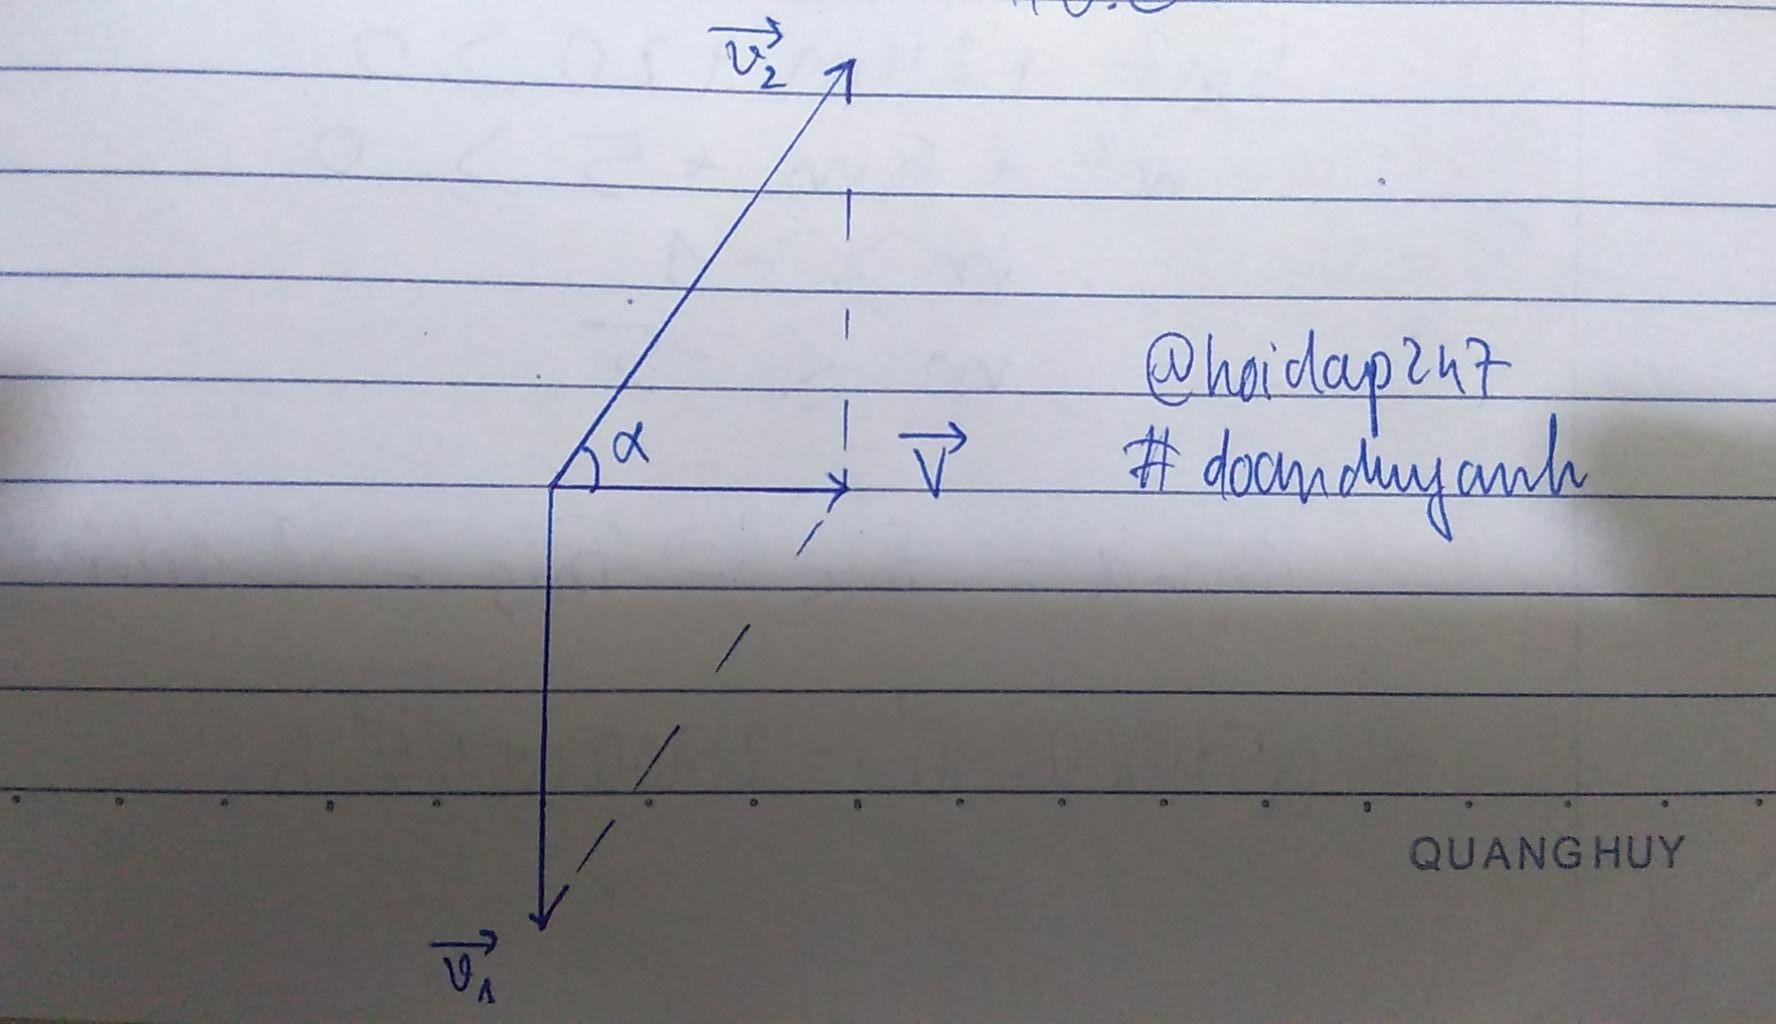 v₂
α
V
@hoidap247
# doanduyanh
QUANG HUY
v₁